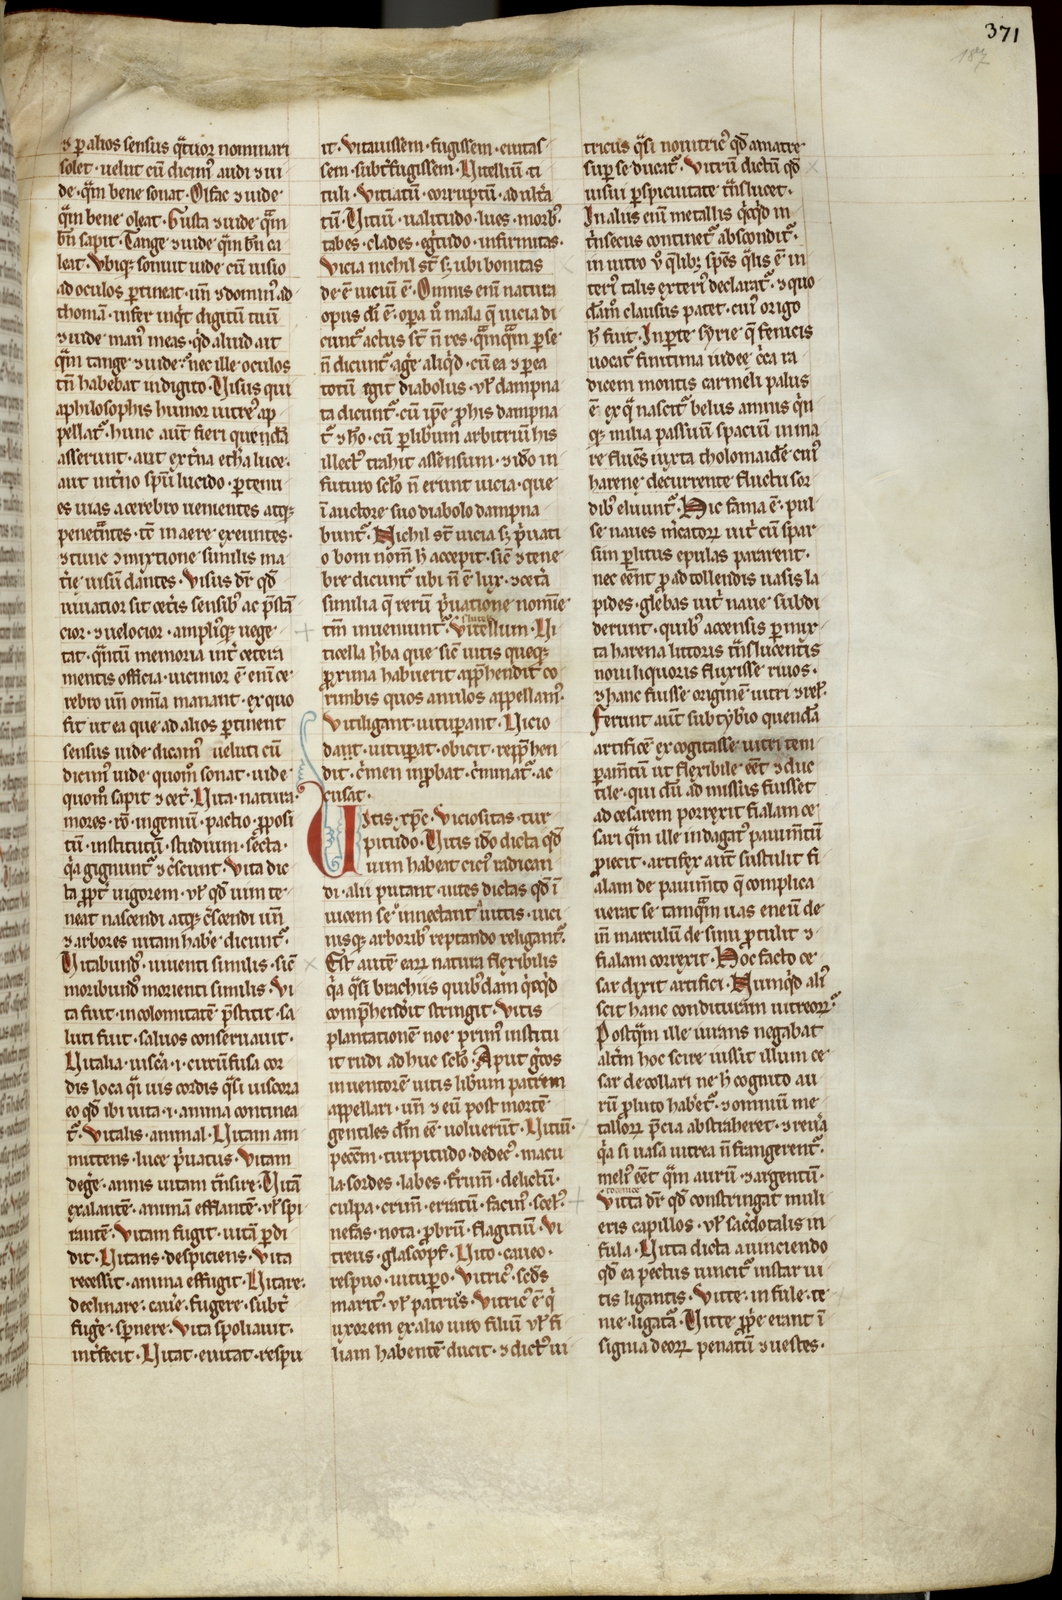 371
187
⁊ ꝑ alios sensus q̃tuor nominari
solet · velut cũ dicim᷒ audi ⁊ ui
de · q̃m bene sonat · Olfac ⁊ uide
q̃m bene oleat · Gusta ⁊ uide q̃m
bñ sapit · Tange ⁊ uide q̃m bñ ca
leat · Vbiqꝫ sonuit uide cũ uisio
ad oculos ꝑtineat · uñ ⁊ domin᷒ ad
thomã · infer inq̇t digitũ tuũ
⁊ uide man᷒ meas · q̇d aliud ait
q̃m tange ⁊ uide · nec ille oculos
tñ habebat in digito · Visus qui
a philosophis humor uitre᷒ ap
pellat᷑ · hunc aũt fieri quendã
asserunt · aut ext̾na etħa luce ·
aut int̾no sp̃u lucido · ꝑ tenu
es uias a cerebro uenientes atqꝫ
penet̾ntes · tẽ in aere exeuntes ·
⁊ tunc ⁊mixtione similis ma
t̾ie uisũ dantes · Visus dr̃ qđ
uiuatior sit cet̾is sensib᷒ ac p̃stã
cior · ⁊ uelocior · ampli᷒qꝫ uege
tat · q̃ntũ memoria int̾ cetera
mentis officia · uicinior ẽ enĩ ce
rebro uñ omĩa manant · ex quo
fit ut ea que ad alios ꝑtinent
sensus uide dicam᷒ ueluti cũ
dicim᷒ uide quom̃ sonat · uide
quom̃ sapit ⁊ cet̾ · Vita · natura ·
mores · rõ · ingeniũ · pactio · ꝓposi
tũ · institutũ · studium · secta ·
q̃a gignunt᷑ ⁊ cr̃scunt · Vita dic
ta ꝓpt̾ uigorem · ul̾ qđ uim te
neat nascendi atqꝫ cr̃scendi uñ
⁊ arbores uitam hab̾e dicunt᷑ ·
Vitabund᷒ · uiuenti similis · sic̃
moribund᷒ morienti similis · Vi
ta fuit · incolumitatẽ p̃stitit · sa
luti fuit · saluos conseruauit ·
Vitalia · uiscera · i · circũfusa cor
dis loca q̃ uis cordis q̃si uiscera
eo qđ ibi uita · i · anima continea
t᷑ · Vitalis · animal · Vitam am
mittens · luce p̾uatus · Vitam
deg̾e · annis uitam t̃nsire · Vitã
exalantẽ · animã efflantẽ · ul̾ spi
rantẽ · Vitam fugit · uitã ꝑdi
dit · Vitans · despiciens · Vita
recessit · anima effugit · Vitare ·
declinare · caue̾ · fugere · subt̾
fug̾e · sp̾nere · Vita spoliauit ·
int̾fecit · Vitat · euitat · respu
it · Vitauissem · fugissem · euitas
sem · subt̾fugissem · Vitelliũ · ti
tuli · Vitiatũ · corruptũ · adult̾a
tũ · Vitiũ · ualitudo · lues · morb᷒ ·
tabes · clades · eg̾tudo · infirmitas ·
Vicia nichil st̃ sꝫ ubi bonitas
deẽ uiciũ ẽ · Omnis enĩ natura
opus di̾ ẽ · opa ũ mala q̃ uicia di
cunt᷑ actus st̃ ñ res · q̃mq̃m ꝑ se
ñ dicunt᷑ ag̾e aliq̇d · cũ ea ⁊ ꝑ ea
totũ agit diabolus · ul̾ dampna
ta dicunt᷑ · cũ ip̃e ꝓ his dampna
t᷑ ⁊ hõ · cũ ꝑ liberum arbitriũ his
illect᷒ trahit assensum · ⁊ iđo in
futuro sc̃lo ñ erunt uicia · que
ĩ auctore suo diabolo dampna
bunt᷑ · Nichil st̃ uicia sꝫ p̾uati
o boni nom̃ h̾ accepit · sic̃ ⁊ tene
bre dicunt᷑ ubi ñ ẽ lux · ⁊ cet̾a
similia q̃ rerũ p̾uatione nomine
tm̃ inueniunt᷑ · Vitellum · Vi
ticella h̾ba que sic̃ uitis queqꝫ
ꝓxima habuerit app̾hendit co
rimbis quos anulos appellam᷒ ·
Vitiligant · uitupant · Vicio
dant · uitupat · obicit · rep̾hen
dit · c̾men inꝓbat · c̾minat᷑ · ac
cusat ·
Vitis · xp̃c · Viciositas · tur
pitudo · Vitis iđo dicta qđ
uim habeat cici᷒ radican
di · alii putant uites dictas qđ ĩ
uicem se innectant uittis · uici
nisqꝫ arborib᷒ reptando religant᷑ ·
Est autẽ earꝝ natura flexibilis
q̃a q̃si brachiis quib᷒dam q̇cq̇d
comp̾hend̾it stringit · Vitis
plantationẽ noe prim᷒ institu
it rudi adhuc sc̃lo · Aput g̾cos
inuentorẽ uitis liberum patrem
appellari · uñ ⁊ eũ post mortẽ
gentiles dm̃ eẽ uoluerũt · Vitiũ ·
pecc̃m · turpitudo · dedec᷒ · macu
la · sordes · labes · fr̃um · delictũ ·
culpa · crim̃ · erratũ · facin᷒ · scel᷒ ·
nefas · nota · ꝓbrũ · flagitiũ · Vi
treus · glascopf · Vito · caueo ·
respuo · uitupo · Vitric᷒ · scđs
marit᷒ · ul̾ patru᷒s · Vitric᷒ ẽ q̇
uxorem ex alio uiro filiũ ul̾ fi
liam habentẽ ducit · ⁊ dict᷒ ui
tricus q̃si nouitric᷒ qđ a matre
suꝑ se ducat᷑ · Vitrũ dictũ qđ
uisui ꝑspicuitate t̃nslucet ·
In aliis enĩ metallis q̇cq̇d in
t̾nsecus continet᷑ abscondit᷑ ·
in uitro ũ q̇libꝫ sp̃es q̃lis ẽ in
teri᷒ talis exteri᷒ declarat᷑ · ⁊ quo
dãm clausus patet · cui᷒ origo
h̾ fuit · In parte syrie q̃ fenicis
uocat᷑ finitima iudee c̾ca ra
dicem montis carmeli palus
ẽ · ex q̃ nascit᷑ belus amnis q̃n
qꝫ milia passuũ spaciũ in ma
re fluẽs iuxta tholomaidẽ cui᷒
harene decurrente fluctu sor
dib᷒ eluunt᷑ · Hic fama ẽ · pul
se naues m̾catorꝝ nit̾ cũ spar
sim ꝑ litus epulas pararent ·
nec eẽnt ꝓ adtollendis uasis la
pides · glebas nit̾ naue subdi
derunt · quib᷒ accensis ꝑmix
ta harena littoris t̃nslucentis
noui liquoris fluxisse riuos ·
⁊ hanc fuisse originẽ uitri ⁊ rel̾ ·
Ferunt aũt sub tyb̾io quendã
artificẽ excogitasse uitri tem
ꝑam̃tũ ut flexibile eẽt ⁊ duc
tile · qui dũ admissus fuisset
ad cesarem porrexit fialam ce
sari q̃m ille indagat᷒ pauim̃tũ
ꝓiecit · artifex aũt sustulit fi
alam de pauim̃to q̃ complica
uerat se tamq̃m uas eneũ de
iñ marculũ de sinu ꝓtulit ⁊
fialam correxit · Hoc facto ce
sar dixit artifici · Numq̇d ali᷒
scit hanc condituram uitreorꝝ ·
Postq̃m ille iurans negabat
alt̾m hoc scire iussit illum ce
sar decollari ne h̾ cognito au
rũ ꝓ luto hab̾et᷑ · ⁊ omniũ me
tallorꝝ p̾cia abstraheret᷑ · ⁊ reuera
q̃a si uasa uitrea ñ frangerent᷑ ·
meli᷒ eẽt q̃m aurũ · ⁊ argentũ ·
Vitta dr̃ qđ constringat muli
eris capillos · ul̾ sac̾dotalis in
fula · Vitta dicta a uinciendo
qđ ea pectus uincit᷑ instar ui
tis ligantis · Vitte · infule · te
nie · ligatã · Vitte ꝓp̾e erant ĩ
signia deorꝝ penatũ ⁊ uestes ·